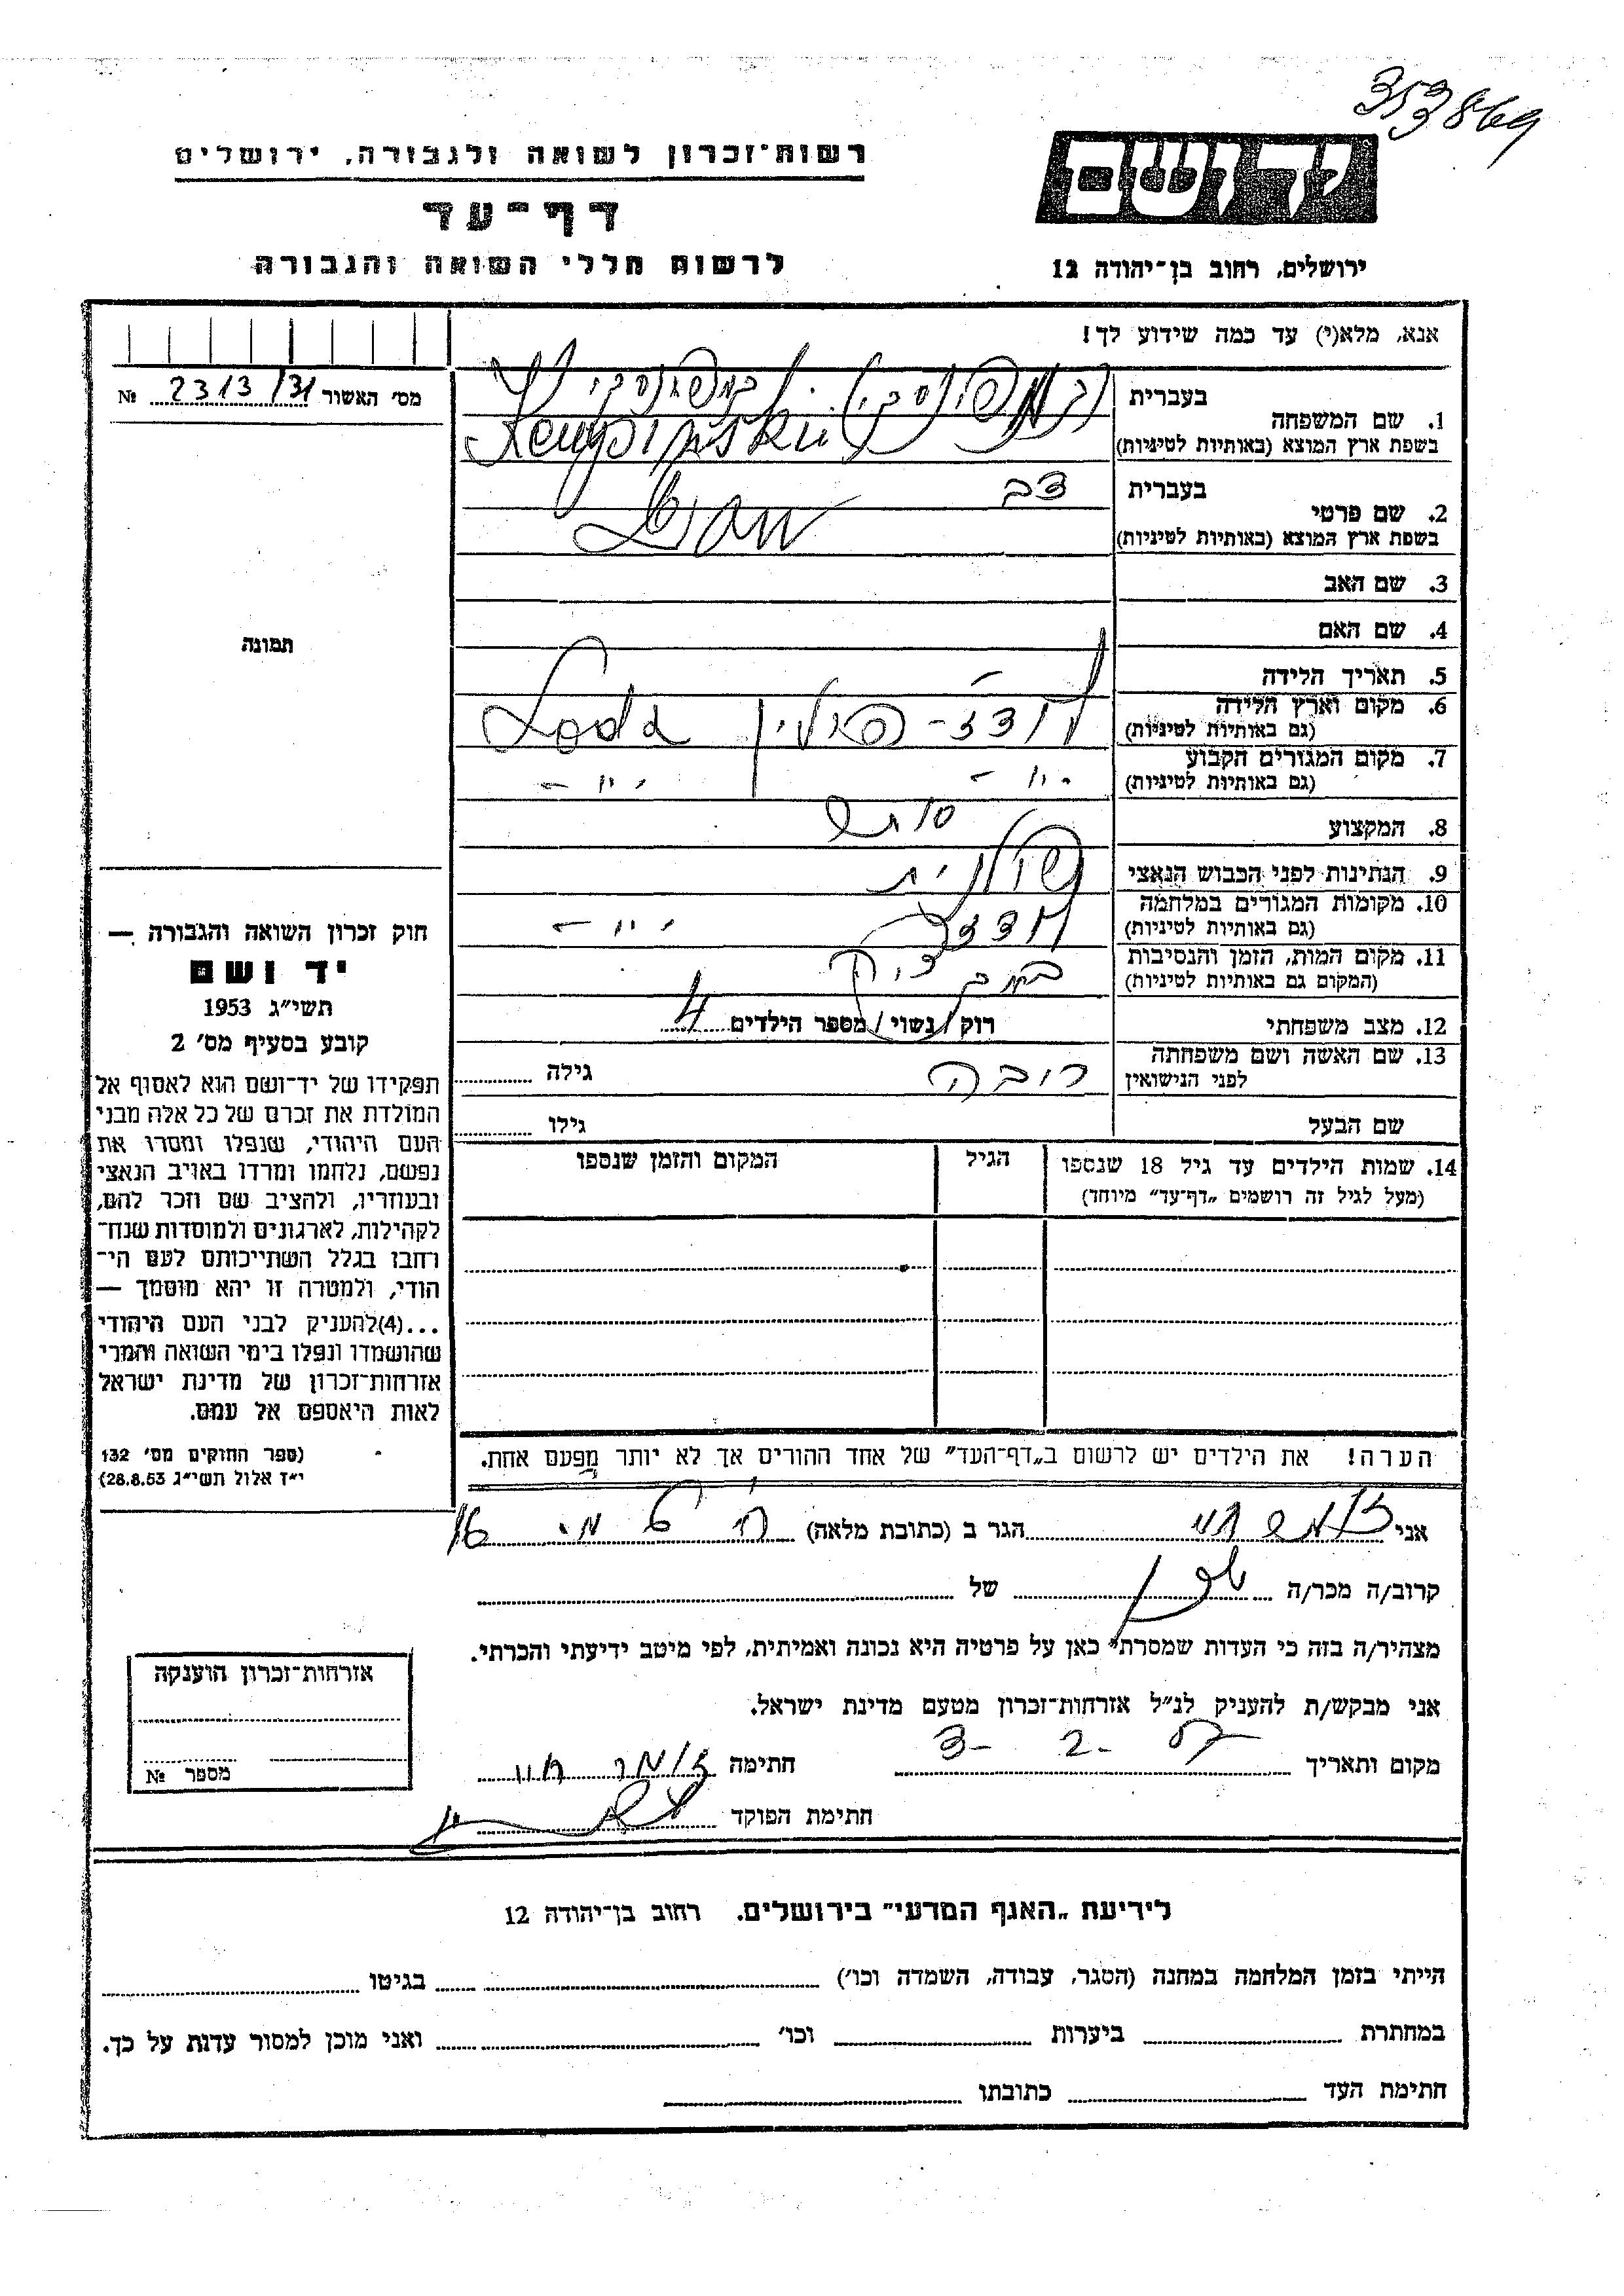 353869
יד ושם
רשות־זכרון לשואה ולגבורה, ירושלים
דף־עד
לרשום חללי השואה והגבורה
ירושלים, רחוב בן־יהודה 12
אנא, מלא(י) עד כמה שידוע לך!
מס׳ האשור 2313/31 №
1. שם המשפחה
בעברית
בשפת ארץ המוצא (באותיות לטיניות)
2. שם פרטי
בעברית צבי
בשפת ארץ המוצא (באותיות לטיניות)
3. שם האב
4. שם האם
5. תאריך הלידה
6. מקום וארץ הלידה
(גם באותיות לטיניות)
לודז־פולין Lodz
7. מקום המגורים הקבוע
(גם באותיות לטיניות)
- " - - " -
8. המקצוע סוחר
9. הנתינות לפני הכבוש הנאצי פולנית
10. מקומות המגורים במלחמה
(גם באותיות לטיניות)
לודז - " -
11. מקום המות, הזמן והנסיבות
(המקום גם באותיות לטיניות)
12. מצב משפחתי רוק / נשוי / מספר הילדים 4
13. שם האשה ושם משפחתה
לפני הנישואין
גילה
שם הבעל גילו
14. שמות הילדים עד גיל 18 שנספו
(מעל לגיל זה רושמים „דף־עד” מיוחד)
הגיל
המקום והזמן שנספו
הערה! את הילדים יש לרשום ב„דף־העד” של אחד ההורים אך לא יותר מפעם אחת.
תמונה
חוק זכרון השואה והגבורה —
יד ושם
תשי״ג 1953
קובע בסעיף מס׳ 2
תפקידו של יד־ושם הוא לאסוף אל
המולדת את זכרם של כל אלה מבני
העם היהודי, שנפלו ומסרו את
נפשם, נלחמו ומרדו באויב הנאצי
ובעוזריו, ולהציב שם וזכר להם,
לקהילות, לארגונים ולמוסדות שנח־
רבו בגלל השתייכותם לעם הי־
הודי, ולמטרה זו יהא מוסמך —
...(4)להעניק לבני העם היהודי
שהושמדו ונפלו בימי השואה והמרי
אזרחות־זכרון של מדינת ישראל
לאות היאספם אל עמם.
(ספר החוקים מס׳ 132
י״ז אלול תשי״ג 28.8.53)
אני הגר ב (כתובת מלאה) 16
קרוב/ה מכר/ה של
מצהיר/ה בזה כי העדות שמסרתי כאן על פרטיה היא נכונה ואמיתית, לפי מיטב ידיעתי והכרתי.
אני מבקש/ת להעניק לנ״ל אזרחות־זכרון מטעם מדינת ישראל.
מקום ותאריך חתימה
חתימת הפוקד
אזרחות־זכרון הוענקה
מספר №
לידיעת „האגף המדעי” בירושלים. רחוב בן־יהודה 12
הייתי בזמן המלחמה במחנה (הסגר, עבודה, השמדה וכו׳) בגיטו
במחתרת ביערות וכו׳ ואני מוכן למסור עדות על כך.
חתימת העד כתובתו